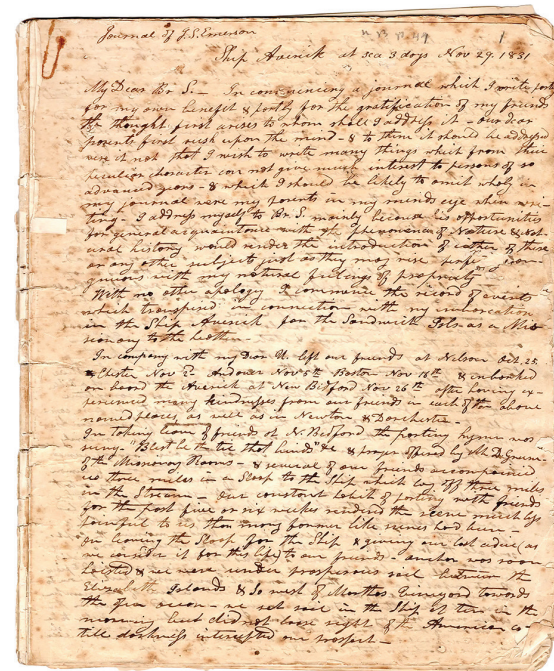 Journal of J.S. Emerson
Ship Averick at sea 3 days Nov 29. 1831
My Dear Br S.— In commencing a journal which I write partly
for my own benefit & partly for the gratification of my friends
the thought first arises to whom shall I address it — our dear
parents first rush upon the mind — & to them it should be addressed
were it not that I wish to write many things which from their
peculiar character can not give much interest to persons of so
advanced years — & which I should be likely to omit wholly in
my journal were my parents in my minds eye when wri-
ting — I address myself to Br S. mainly because his opportunities
for general acquaintance with the phenomena of Nature & nat-
ural history would render the introduction of either of these
or any other subject just as they may rise
with my natural feelings of propriety—
With no other apology I commence the record of events
which transpired in connection with my embarcation
in the Ship Averick for the Sandwich Isls as a Mis-
sionary to the heathen.
In company with my Dear U. left our friends at Nelson Oct. 25
& Chester Nov 2. Andover Nov 5th Boston Nov 18th & embarked
on board the Averick at New Bedford Nov 26th after having ex-
perienced many kindnesses from our friends in each of the above
named places, as well as in Newton & Dorchester.
In taking leave of friends at N. Bedford, the parting hymn was
sung — "Blest be the tie that binds" &c & prayer offered by Mr. D. Greene
of the Missionary Rooms — & several of our friends accompanied
us three miles in a Sloop to the Ship which lay off three miles
in the Stream — Our constant habit of parting with friends
for the past five or six weeks rendered the scene much less
painful to us, than many former like scenes had been —
on leaving the Sloop for the Ship & giving our last adieu (as
we consider it for this life) to our friends — anchor was soon
hoisted & we were under prosperous sail between the
Elizabeth Islands & So west of Marthas Vineyard towards
the open ocean — we set sail in the Ship at ten in the
morning but did not lose sight of the American co-
till darkness intercepted our prospect—